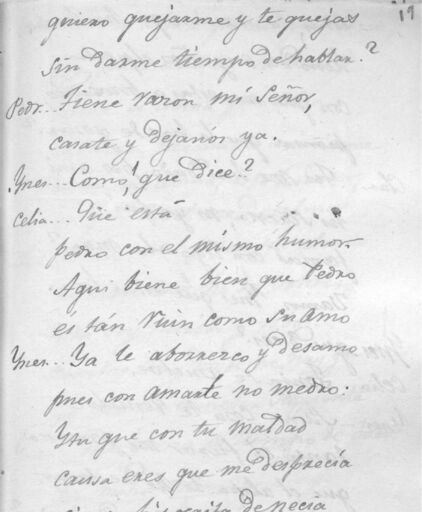 19
quiero quejarme y te quejas
sin darme tiempo de hablar?
Pedr... Tiene razon mi Señor,
casate y dejanos ya.
Ynes... Como, que dice?
Celia... Que está
pedro con el mismo humor.
Aqui biene bien que Pedro
és tán ruin como su Amo
Ynes... Ya le aborrezco y desamo
pues con amarte no medro:
Y tu que con tu maldad
causa eres que me desprecia
de necia